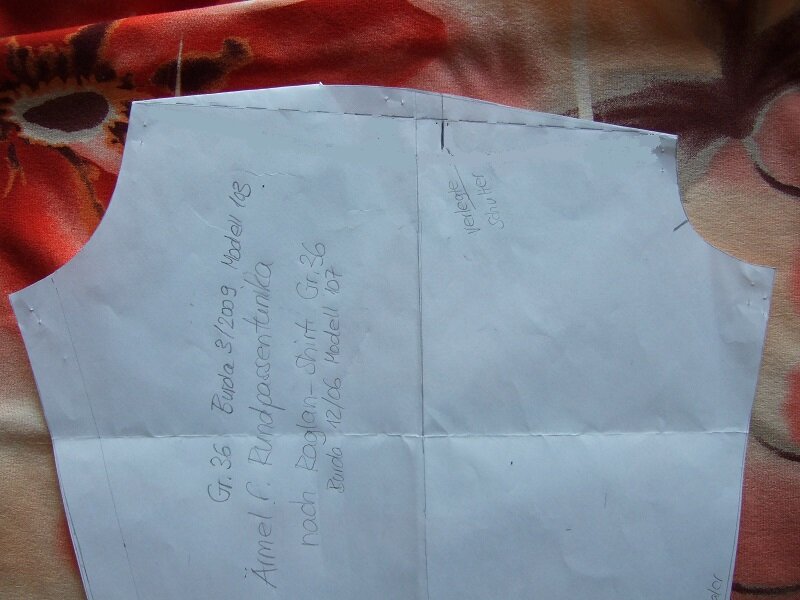 Gr. 36 Burda 3/2009 Modell 103
Ärmel f. Rundpassentunika
nach Raglan-Shirt Gr. 36
Burda 12/06 Modell 107
verlegte
Schulter